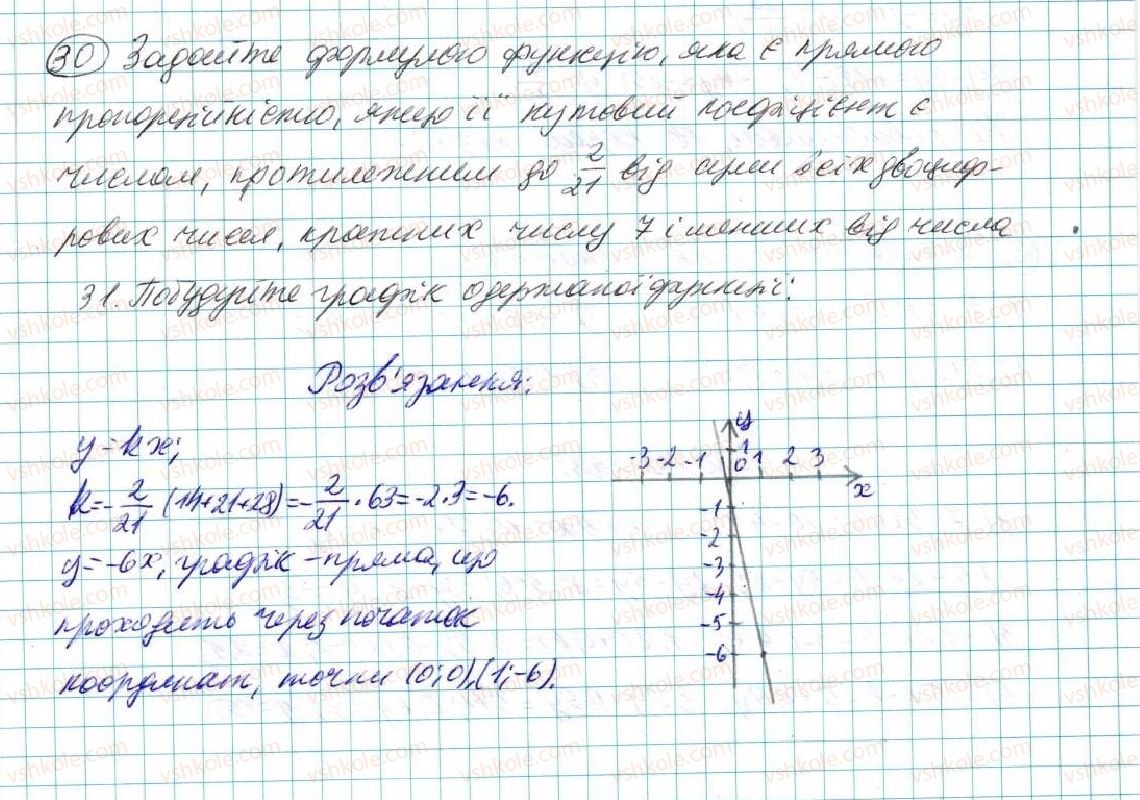 30 Задайте формулою функцію, яка є прямою
пропорційністю, якщо її кутовий коефіцієнт є
числом, протилежним до 2/21 від суми всіх двоциф-
рових чисел, кратних числу 7 і менших від числа
31. Побудуйте графік одержаної функції:
Розв'язання:
y = kx;
k = -2/21 (14+21+28) = -2/21 · 63 = -2·3 = -6.
y = -6x, графік - пряма, що
проходить через початок
координат, точки (0;0),(1;-6).
y
1
-3 -2 -1 0 1 2 3
x
-1
-2
-3
-4
-5
-6
vshkole.com